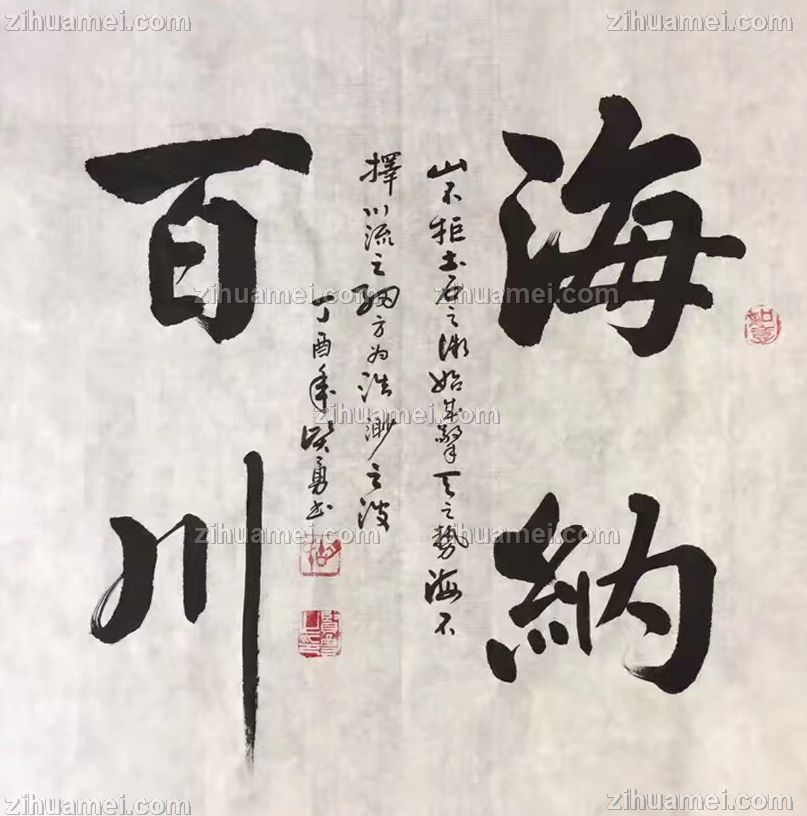 海納
山不拒土石之微始成擎天之勢海不
擇川流之細方為浩渺之波
丁酉年賢勇书
百川
如意
zihuamei.com
zihuamei.com
zihuamei.com
zihuamei.com
zihuamei.com
zihuamei.com
zihuamei.com
zihuamei.com
zihuamei.com
zihuamei.com